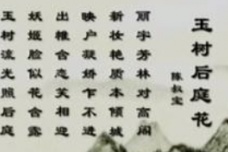 玉树后庭花
陈叔宝
丽宇芳林对高阁
新妆艳质本倾城
映户凝娇乍不进
出帷含态笑相迎
妖姬脸似花含露
玉树流光照后庭